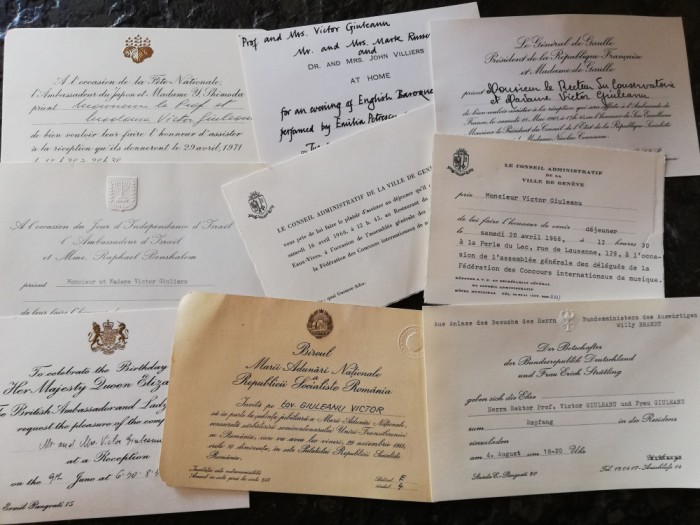 A l'occasion de la Fête Nationale,
l'Ambassadeur du Japon et Madame Y. Shimoda
prient Monsieur le Prof et
Madame Victor Giuleanu
de bien vouloir leur faire l'honneur d'assister
à la réception qu'ils donneront le 29 avril, 1971
Prof and Mrs. Victor Giuleanu
Mr. and Mrs. Mark
and
DR. AND MRS. JOHN VILLIERS
AT HOME
for an evening of English Baroque
performed by Emilia Petrescu
Le Général de Gaulle
Président de la République Française
et Madame de Gaulle
prient Monsieur le Recteur du Conservatoire
et Madame Victor Giuleanu
de bien vouloir assister à la
Monsieur le Président du Conseil d'Etat de la République Socialiste
A l'occasion du Jour d'Indépendance d'Israël
l'Ambassadeur d'Israël
et Mme. Raphael Benshalom
prient Monsieur et Madame Victor Giulianu
LE CONSEIL ADMINISTRATIF DE LA VILLE DE GENÈVE
vous prie de lui faire le plaisir d'assister au déjeuner qu'il
samedi 16 avril 1966, à 12 h. 45, au Restaurant
Eaux-Vives, à l'occasion de l'assemblée générale
la Fédération des Concours internationaux de
LE CONSEIL ADMINISTRATIF
DE LA
VILLE DE GENÈVE
prie Monsieur Victor Giuleanu
de lui faire l'honneur de venir déjeuner
le samedi 20 avril 1968, à 12 heures 30
à la Perle du Lac, rue de Lausanne, 128, à l'occa-
sion de l'assemblée générale des délégués de la
Fédération des Concours internationaux de musique.
To celebrate the Birthday
Her Majesty Queen Eliza
The British Ambassador and Lady
request the pleasure of the comp
Mr and Mrs. Victor Giuleanu
at a Reception
on the 9th June at 6.30-8.
Ermil Pangratti 15
Biroul
Marii Adunări Naționale
Republicii Socialiste România
Invită pe tov. GIULEANU VICTOR
să ia parte la ședința jubiliară a Marii Adunări Naționale,
consacrată sărbătoririi semicentenarului Unirii Transilvaniei
cu România, care va avea loc vineri, 29 noiembrie 1968,
orele 10 dimineața, în sala Palatului Republicii Socialiste
România.
Aus Anlass des Besuchs des Herrn Bundesministers des Auswärtigen
Willy BRANDT
Der Botschafter
der Bundesrepublik Deutschland
und Frau Erich Strätling
geben sich die Ehre
Herrn Rektor Prof. Victor GIULEANU und Frau GIULEANU
zum Empfang in die Residenz
einzuladen
am 4. August um 18-20 Uhr